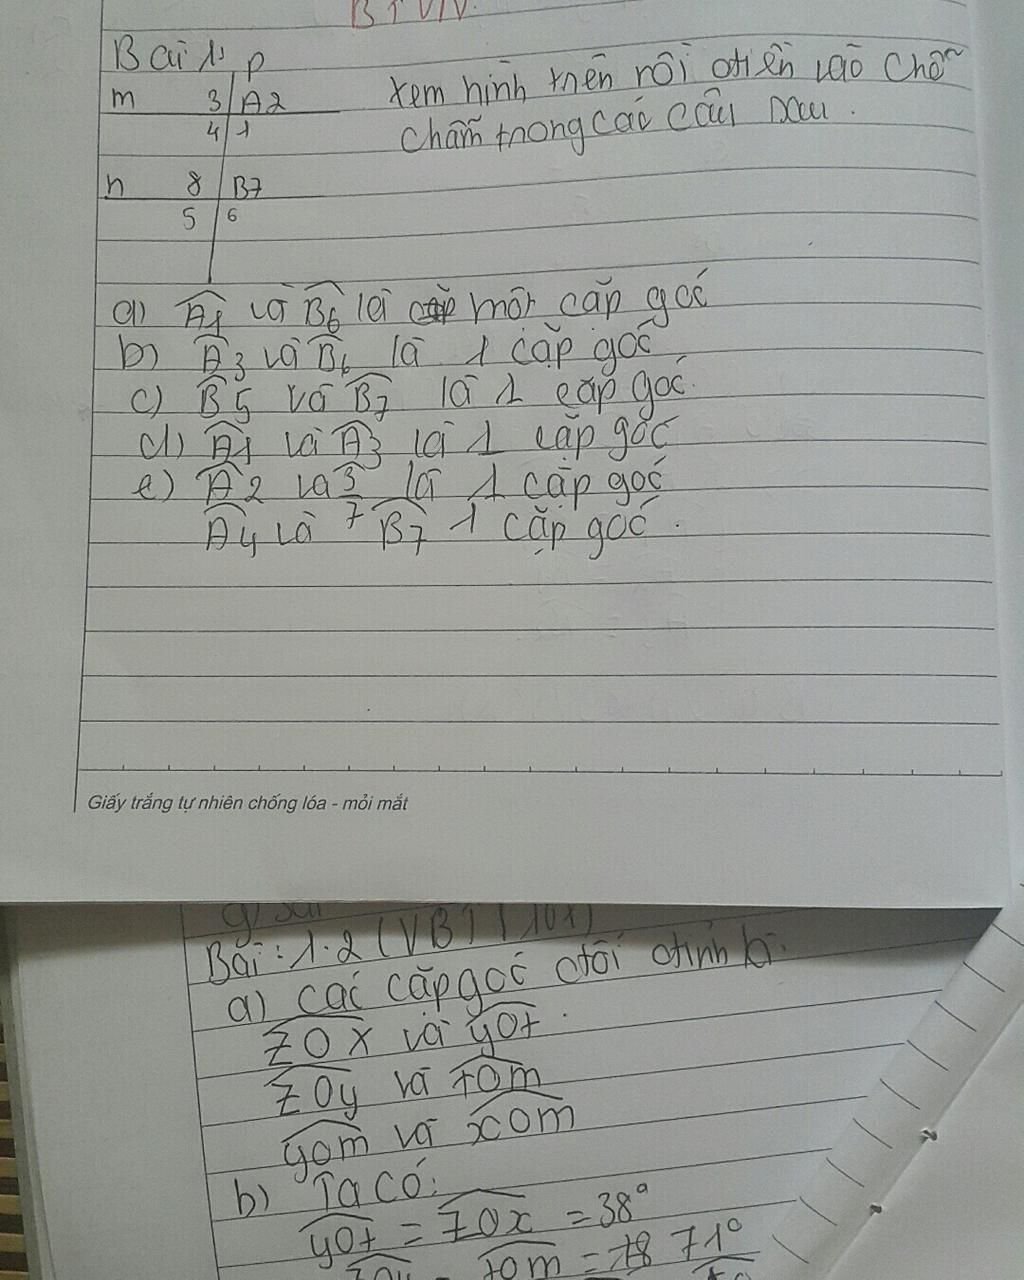 BTVN
Bài 1: p
m 3 A2 xem hình trên rồi điền vào chỗ
4 1 chấm trong các câu sau.
n 8 B7
5 6
a) A1 và B6 là một cặp góc
b) A3 và B6 là 1 cặp góc
c) B5 và B7 là 1 cặp góc.
d) A1 và A3 là 1 cặp góc
e) A2 và 3 là 1 cặp góc
A4 và 7 B7 1 cặp góc.
Giấy trắng tự nhiên chống lóa - mỏi mắt
g) sai
Bài: 1.2 (VBT
a) các cặp góc đối đỉnh là:
zOx và yOt.
zOy và tOm
yOm và xOm
b) Ta có:
yOt = zOx = 38°
tOm = 71°